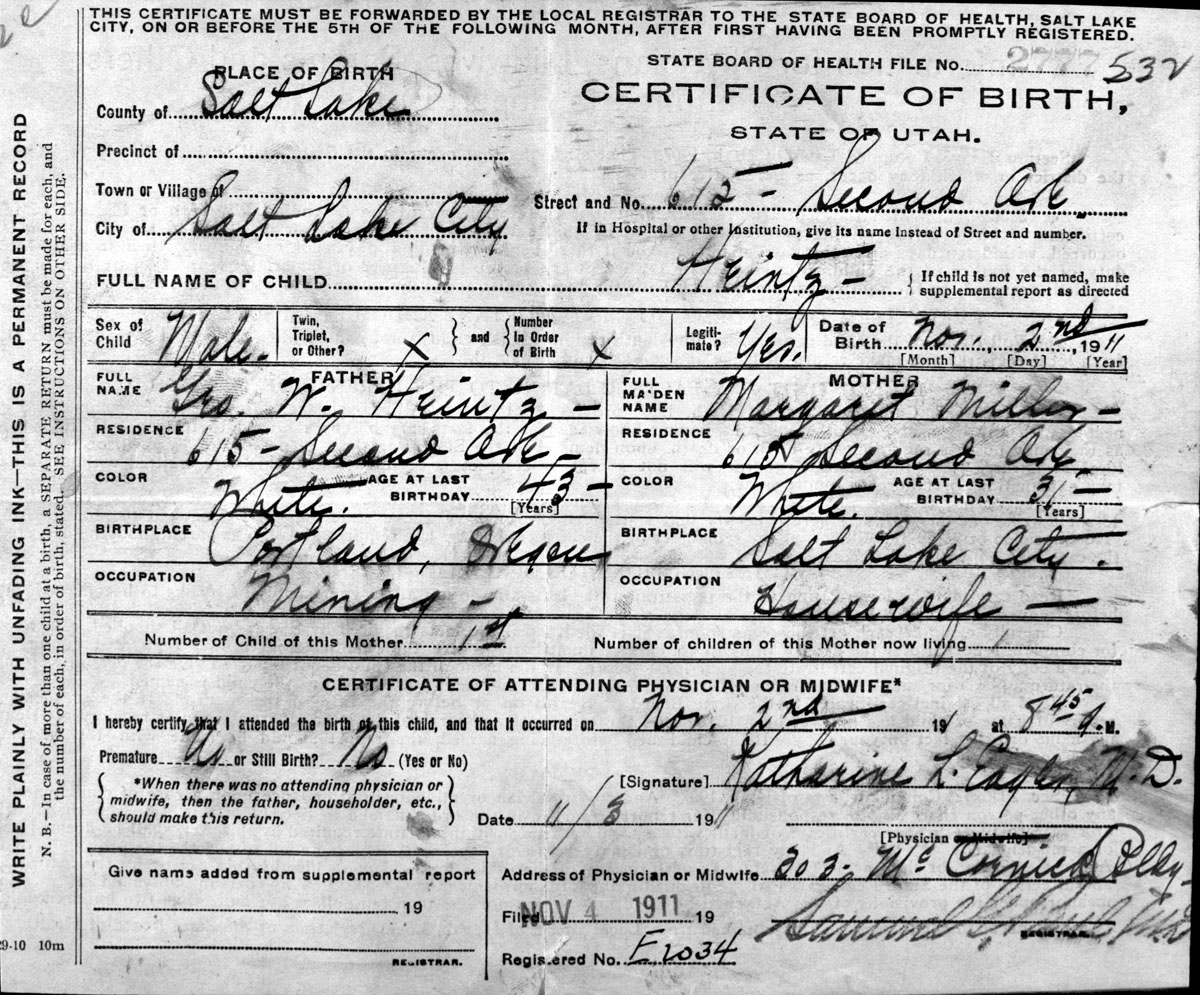 THIS CERTIFICATE MUST BE FORWARDED BY THE LOCAL REGISTRAR TO THE STATE BOARD OF HEALTH, SALT LAKE
CITY, ON OR BEFORE THE 5TH OF THE FOLLOWING MONTH, AFTER FIRST HAVING BEEN PROMPTLY REGISTERED.
STATE BOARD OF HEALTH FILE No. 2777 532
PLACE OF BIRTH
CERTIFICATE OF BIRTH,
County of Salt Lake
STATE OF UTAH.
Precinct of
Town or Village of
Street and No. 615 - Second Ave.
City of Salt Lake City
If in Hospital or other Institution, give its name instead of Street and number.
FULL NAME OF CHILD Heintz - { If child is not yet named, make
supplemental report as directed
Sex of Child Male. Twin, Triplet, or Other? x } and { Number in Order of Birth x Legiti-mate? Yes. Date of Birth Nov. 2nd, 1911
[Month] [Day] [Year]
FATHER MOTHER
FULL NAME Geo. W. Heintz - FULL MAIDEN NAME Margaret Miller -
RESIDENCE 615 - Second Ave - RESIDENCE 615 Second Ave.
COLOR White. AGE AT LAST BIRTHDAY 43 - [Years] COLOR White. AGE AT LAST BIRTHDAY 31 - [Years]
BIRTHPLACE Portland, Oregon BIRTHPLACE Salt Lake City.
OCCUPATION Mining - OCCUPATION Housewife -
Number of Child of this Mother 1st Number of children of this Mother now living 1
CERTIFICATE OF ATTENDING PHYSICIAN OR MIDWIFE*
I hereby certify that I attended the birth of this child, and that it occurred on Nov. 2nd 191 at 8 45 A. M.
Premature No or Still Birth? No (Yes or No)
*When there was no attending physician or
midwife, then the father, householder, etc.,
should make this return.
[Signature] Katharine L. M.D.
Date 11/3 1911
[Physician or Midwife]
Address of Physician or Midwife 203 - McCornick Bldg
Give name added from supplemental report
19
REGISTRAR.
Filed NOV 4 1911 19
Samuel G. Paul
REGISTRAR.
Registered No. E2034
WRITE PLAINLY WITH UNFADING INK—THIS IS A PERMANENT RECORD
N. B.—In case of more than one child at a birth, a SEPARATE RETURN must be made for each, and
the number of each, in order of birth, stated. SEE INSTRUCTIONS ON OTHER SIDE.
29-10 10m